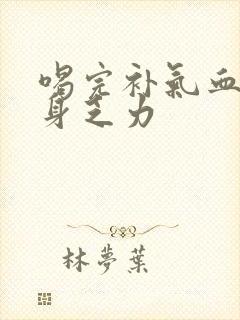 喝完补氣血
身乏力
林夢葉